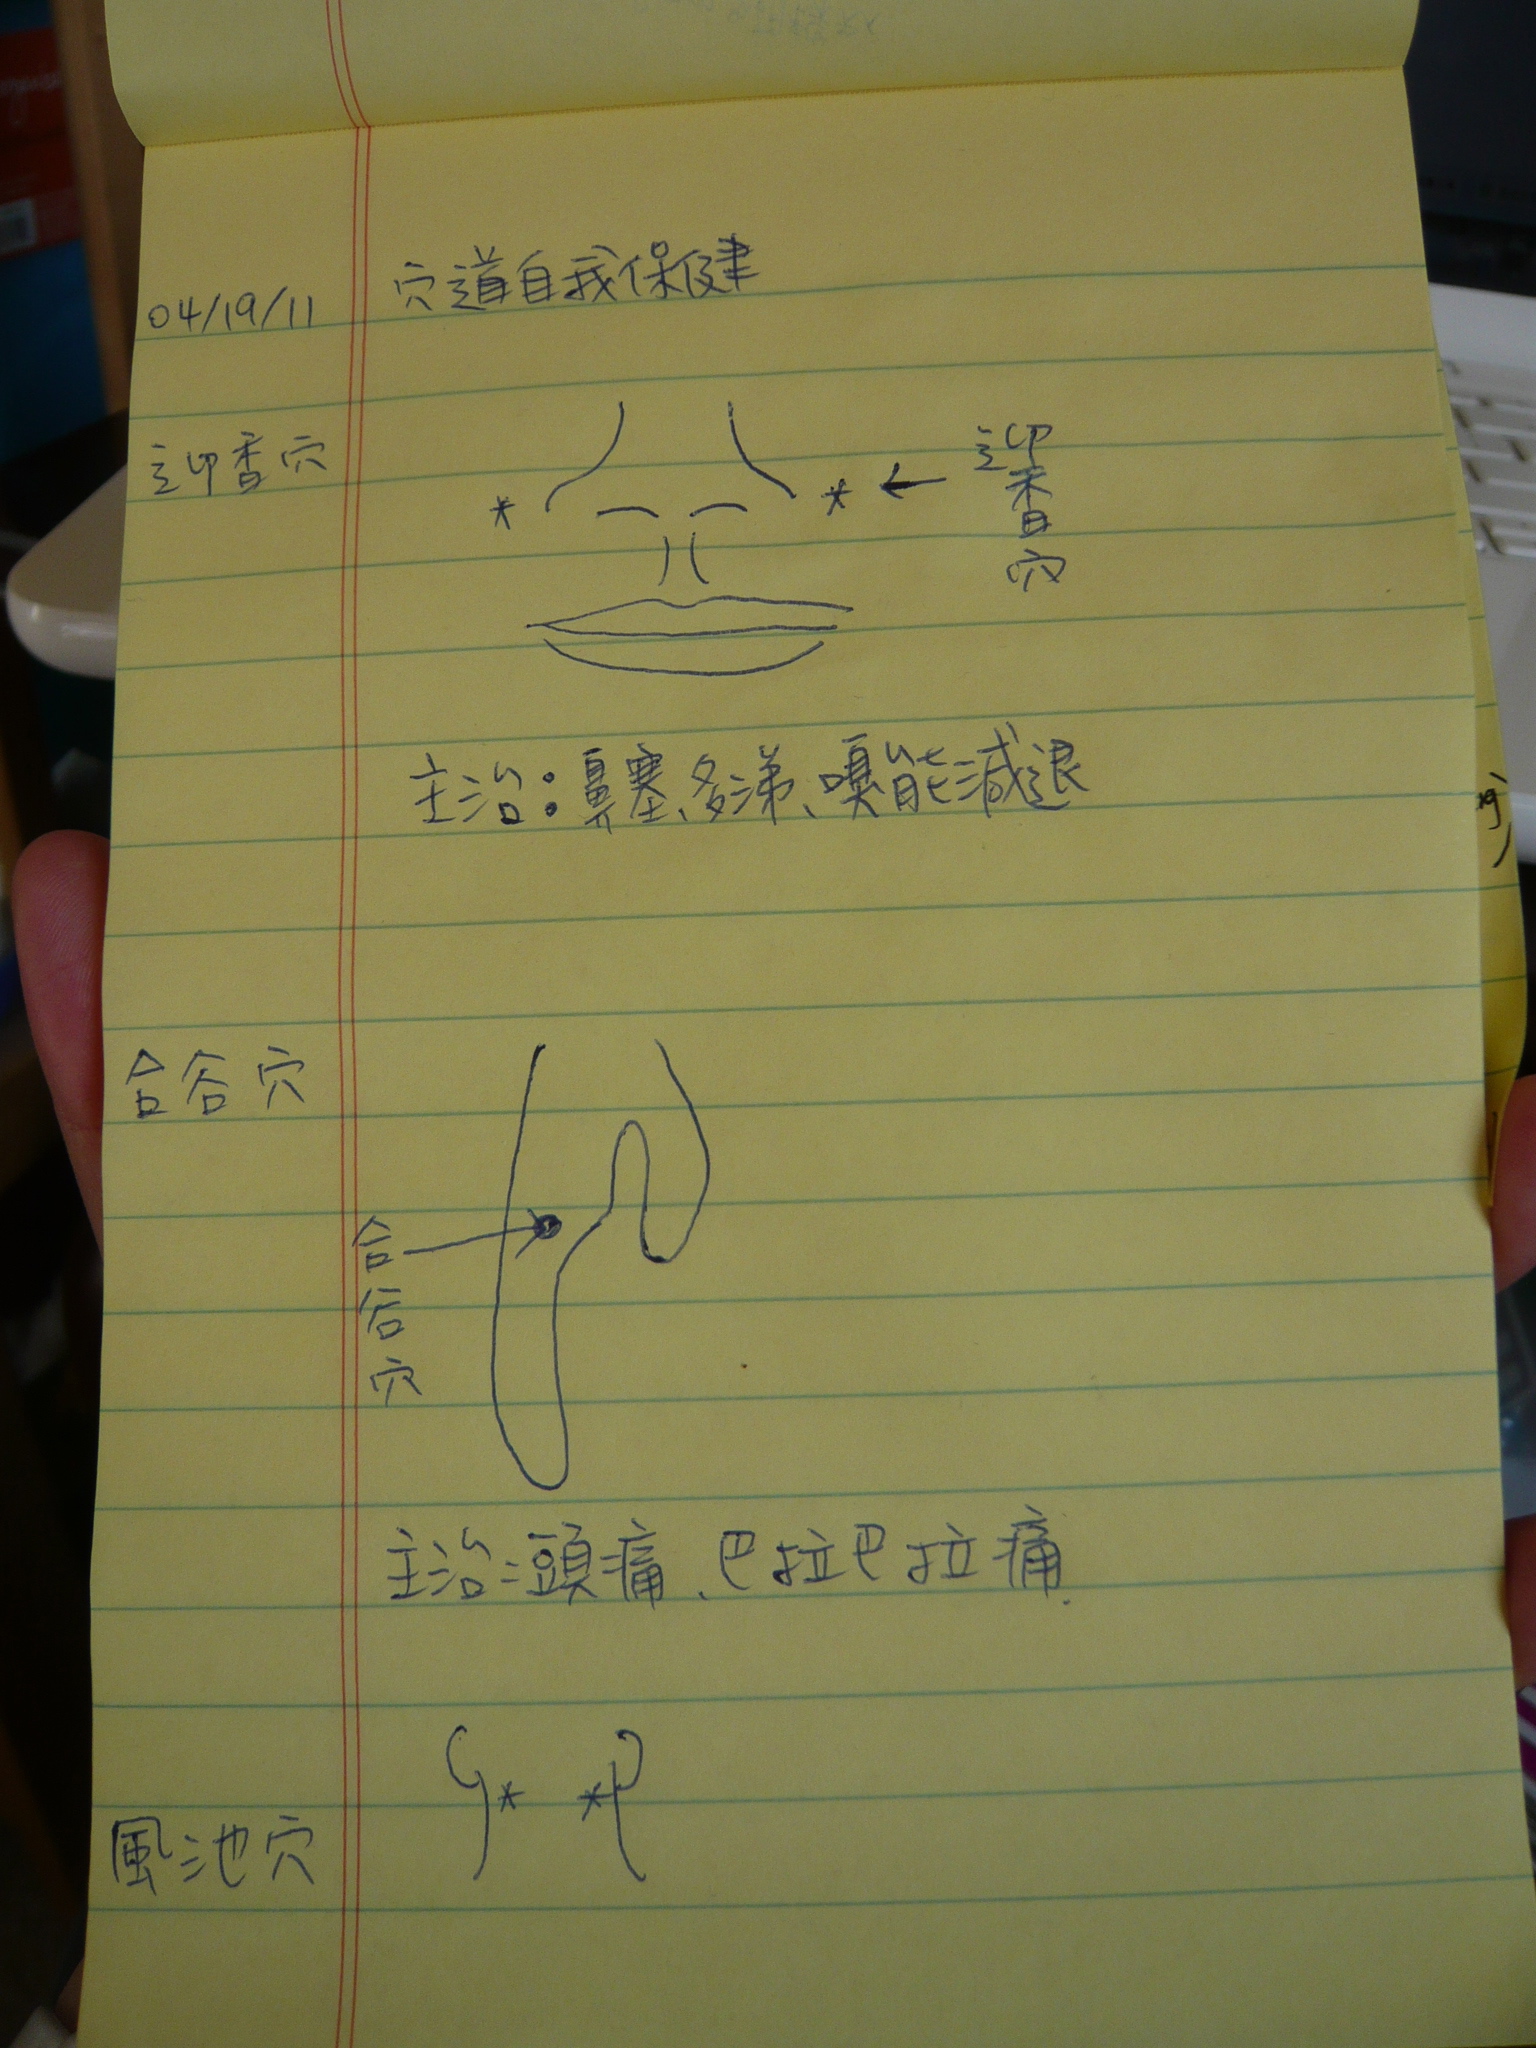 穴道自我保健
04/19/11
迎香穴
迎香穴
主治:鼻塞、多涕、嗅能減退
合谷穴
合谷穴
主治:頭痛、巴拉巴拉痛.
風池穴